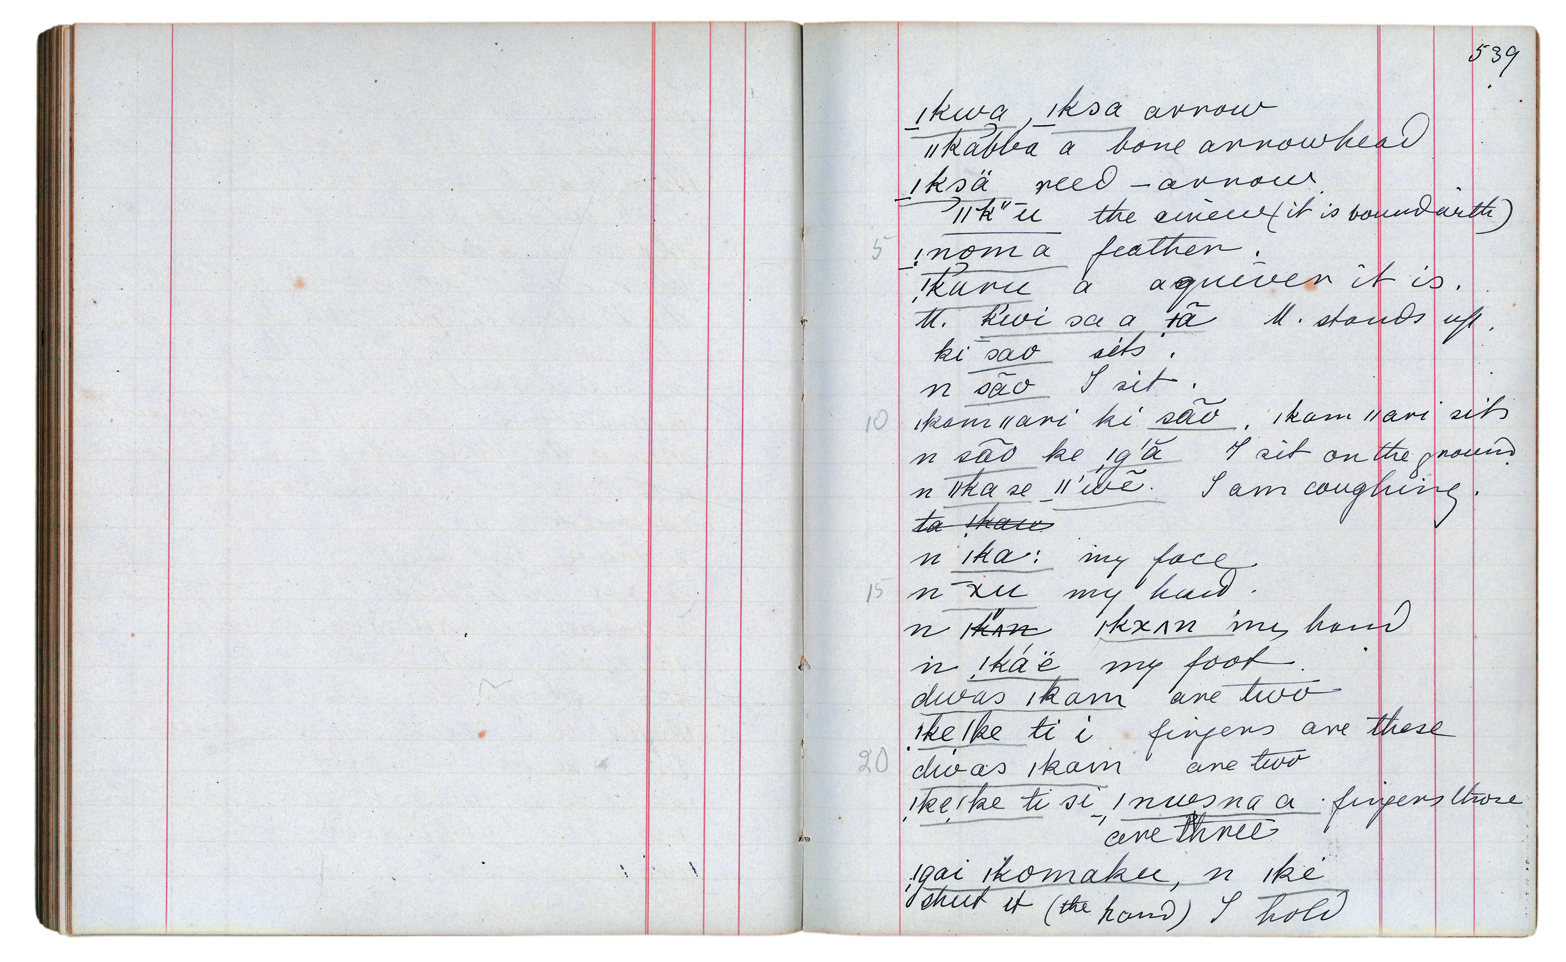 539
ǀkwa, ǀksa arrow
ǁkabba a bone arrowhead
ǀksä reed - arrow.
ǁk"u the sinew (it is bound with)
5 !noma feather.
!kuru a a quiver it is.
M. kwi sa a tã M. stands up.
ki sao sits.
n sāo I sit.
10 ǀkamǁari ki são, ǀkamǁari sits
n são ke !g'ã I sit on the ground
n ǁka se ǁ'wẽ. I am coughing.
ta !kau
n ǀka: my face
15 n xu my head.
n ǀkʌn ǀkxʌn my hand
n !káë my foot.
dwas ǀkam are two
!keǀke ti i fingers are these
20 dwas ǀkam are two
!keǀke ti si, !nwesna a. fingers those
are three
!gai ǀkomaku, n ǀké
shut it (the hand) I hold